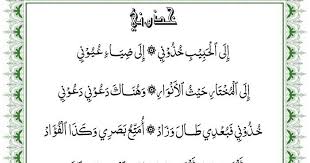 خذوني
إِلَى الْحَبِيبِ خُذُونِي ۞ إِلَى ضِيَاءِ عُيُونِي
إِلَى الْمُخْتَارِ حَيْثُ الْأَنْوَارِ ۞ وَهُنَاكَ دَعُونِي دَعُونِي
خُذُونِي فَبُعْدِي طَالَ وَزَادُ ۞ أُمَتِّعْ بَصَرِي وَكَذَا الْفُؤَادُ